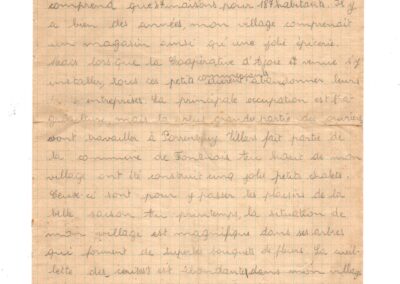 comprend que 37 maisons, pour 187 habitants. Il y
a bien des années, mon village comprenait
un magasin ainsi qu'une jolie épicerie.
Mais lorsque la Coopérative d'Ajoie est venue s'y
installer, tous ces petits commerçants durent abandonner leurs
entreprises. La principale occupation est
mais la plus grande partie des ouvriers
vont travailler à Porrentruy. Villars fait partie de
la commune de Fontenais. Au haut de mon
village ont été construit cinq jolis petits chalets.
Ceux-ci sont pour y passer les plaisirs de la
belle saison. Au printemps, la situation de
mon village est magnifique dans ses arbres
qui forment de superbes bouquets de fleurs. La cueil-
lette des cerises est abondante, dans mon village